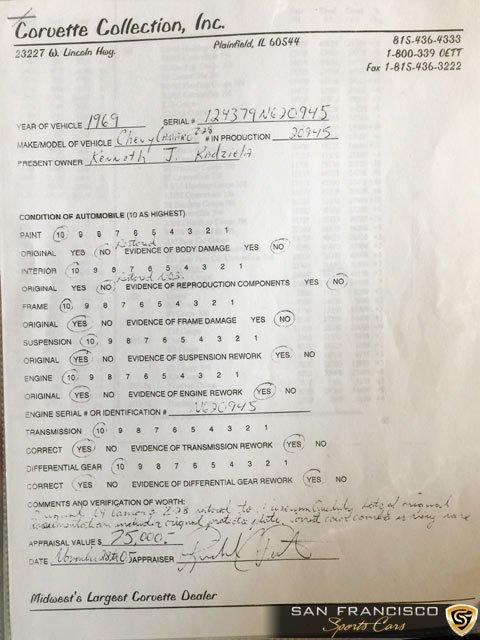 Corvette Collection, Inc.
23227 W. Lincoln Hwy. Plainfield, IL 60544 815-436-4333
1-800-339 OETT
Fax 1-815-436-3222
YEAR OF VEHICLE 1969 SERIAL # 124379N620945
MAKE/MODEL OF VEHICLE Chevy Camaro Z28 # IN PRODUCTION 20945
PRESENT OWNER Kenneth J. Kadziela
CONDITION OF AUTOMOBILE (10 AS HIGHEST)
PAINT 10 9 8 7 6 5 4 3 2 1
ORIGINAL YES NO Restored EVIDENCE OF BODY DAMAGE YES NO
INTERIOR 10 9 8 7 6 5 4 3 2 1
ORIGINAL YES NO Restored EVIDENCE OF REPRODUCTION COMPONENTS YES NO
FRAME 10 9 8 7 6 5 4 3 2 1
ORIGINAL YES NO EVIDENCE OF FRAME DAMAGE YES NO
SUSPENSION 10 9 8 7 6 5 4 3 2 1
ORIGINAL YES NO EVIDENCE OF SUSPENSION REWORK YES NO
ENGINE 10 9 8 7 6 5 4 3 2 1
ORIGINAL YES NO EVIDENCE OF ENGINE REWORK YES NO
ENGINE SERIAL # OR IDENTIFICATION # N620945
TRANSMISSION 10 9 8 7 6 5 4 3 2 1
CORRECT YES NO EVIDENCE OF TRANSMISSION REWORK YES NO
DIFFERENTIAL GEAR 10 9 8 7 6 5 4 3 2 1
CORRECT YES NO EVIDENCE OF DIFFERENTIAL GEAR REWORK YES NO
COMMENTS AND VERIFICATION OF WORTH:
69 Camaro Z28 restored to lots of original
documentation original plate color combo is very rare
APPRAISAL VALUE $ 75,000.-
DATE November APPRAISER
Midwest's Largest Corvette Dealer
SAN FRANCISCO
Sports Cars